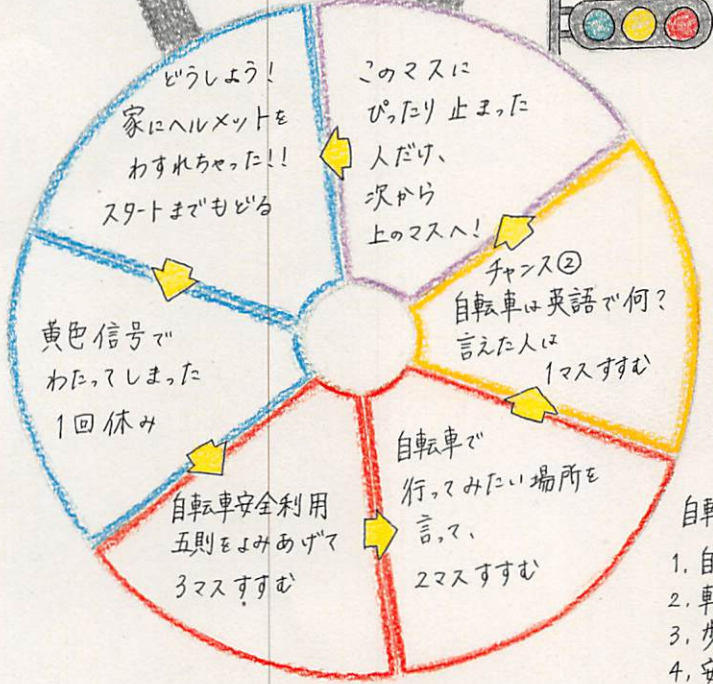 どうしよう!
家にヘルメットを
わすれちゃった!!
スタートまでもどる
このマスに
ぴったり止まった
人だけ、
次から
上のマスへ!
チャンス②
自転車は英語で何?
言えた人は
1マスすすむ
黄色信号で
わたってしまった
1回休み
自転車安全利用
五則をよみあげて
3マスすすむ
自転車で
行ってみたい場所を
言って、
2マスすすむ
自転
1.自
2.車
3.歩
4.安